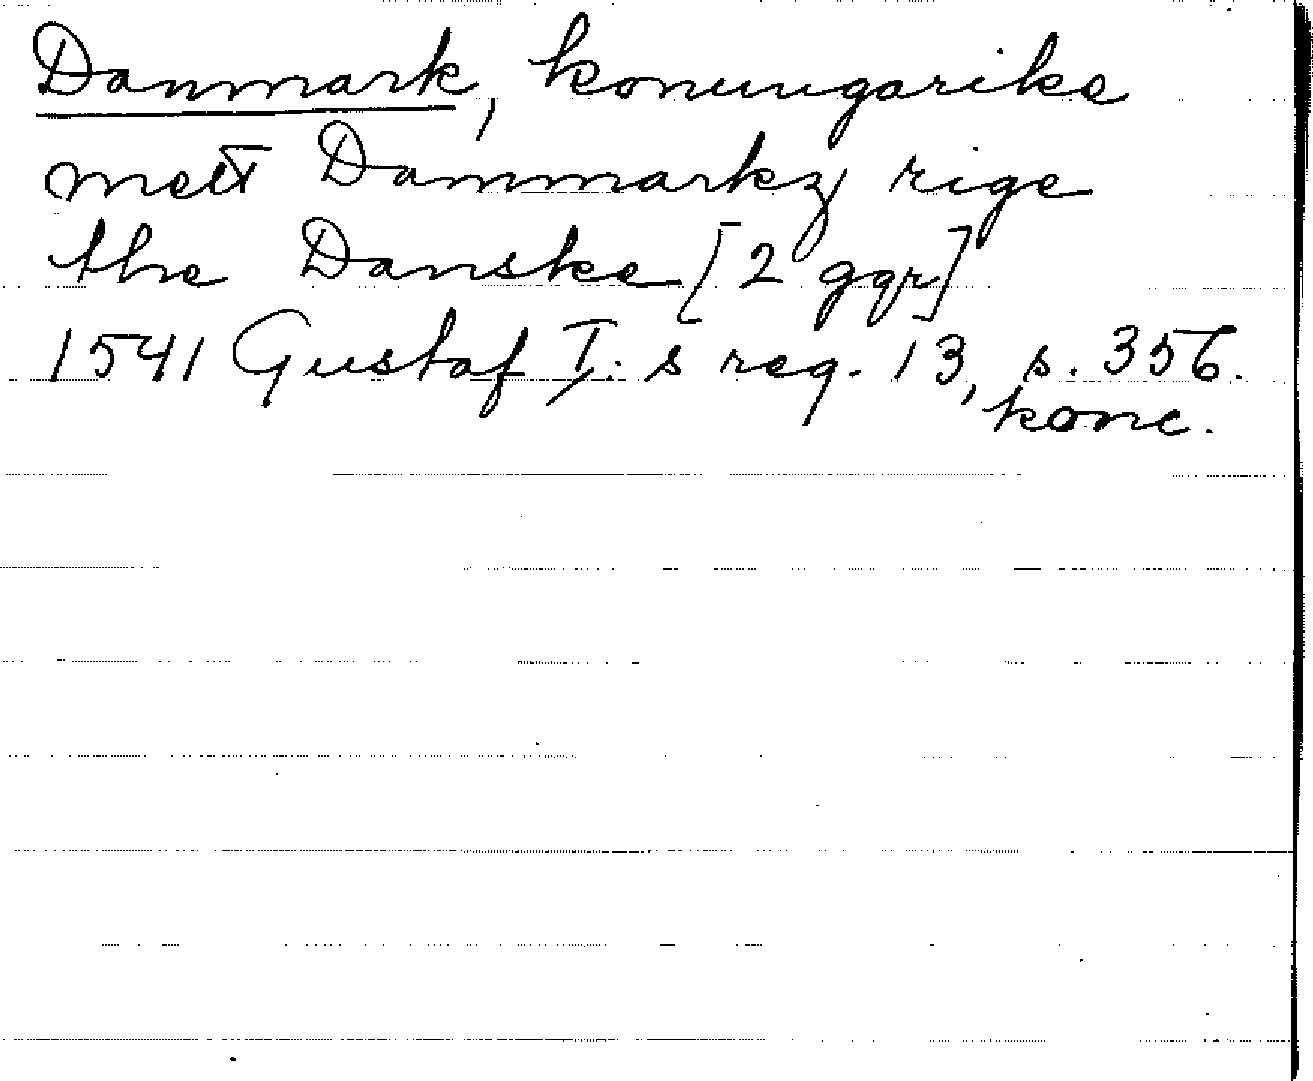 Danmark, konungarike
mett Dammarkz rige
the Danske [2 ggr]
1541 Gustaf I:s reg. 13, s. 356.
konc.